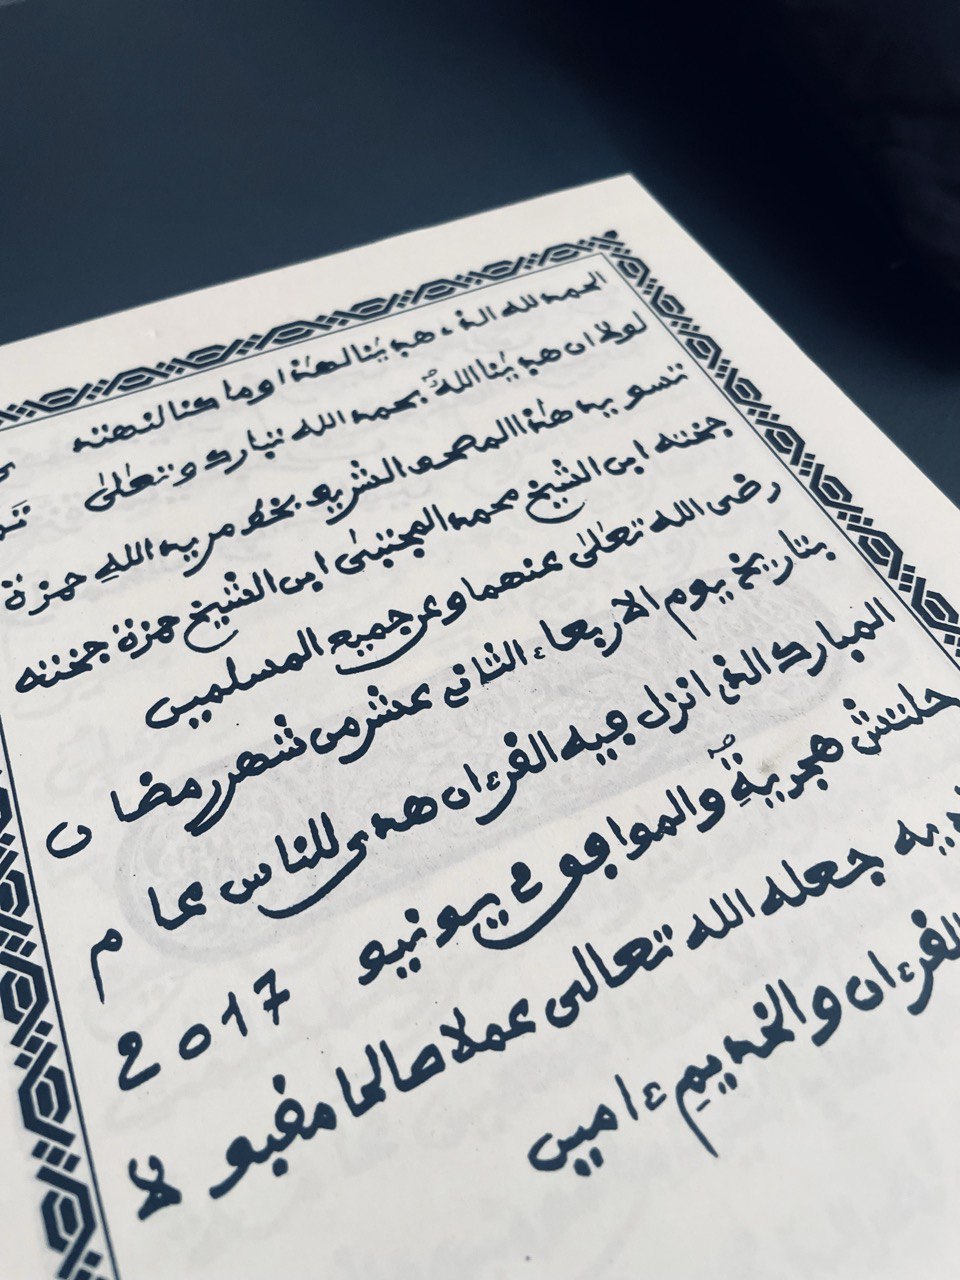 الحمد لله الذے هدیٰنا لهٰذا وما كنا لنهتدے
لولا ان هدیٰنا اللهُ بحمد الله تبارك وتعالىٰ تم
تسويد هٰذا المصحف الشريف بخط مريد اللهِ حمزة
جخته ابن الشيخ محمد المجتبىٰ ابن الشيخ حمزة جخته
رضى الله تعالىٰ عنهما وعن جميع المسلمين
بتاريخ يوم الاربعاء الثانى عشر من شهر رمضان
المبارك الذى انزل فيه القرءان هدى للناس عام
حلتش هجريةٍ والموافق فے يونيو 2017
جعله الله تعالى عملا صالحا مقبولا
القرءان والخديمِ ءامين